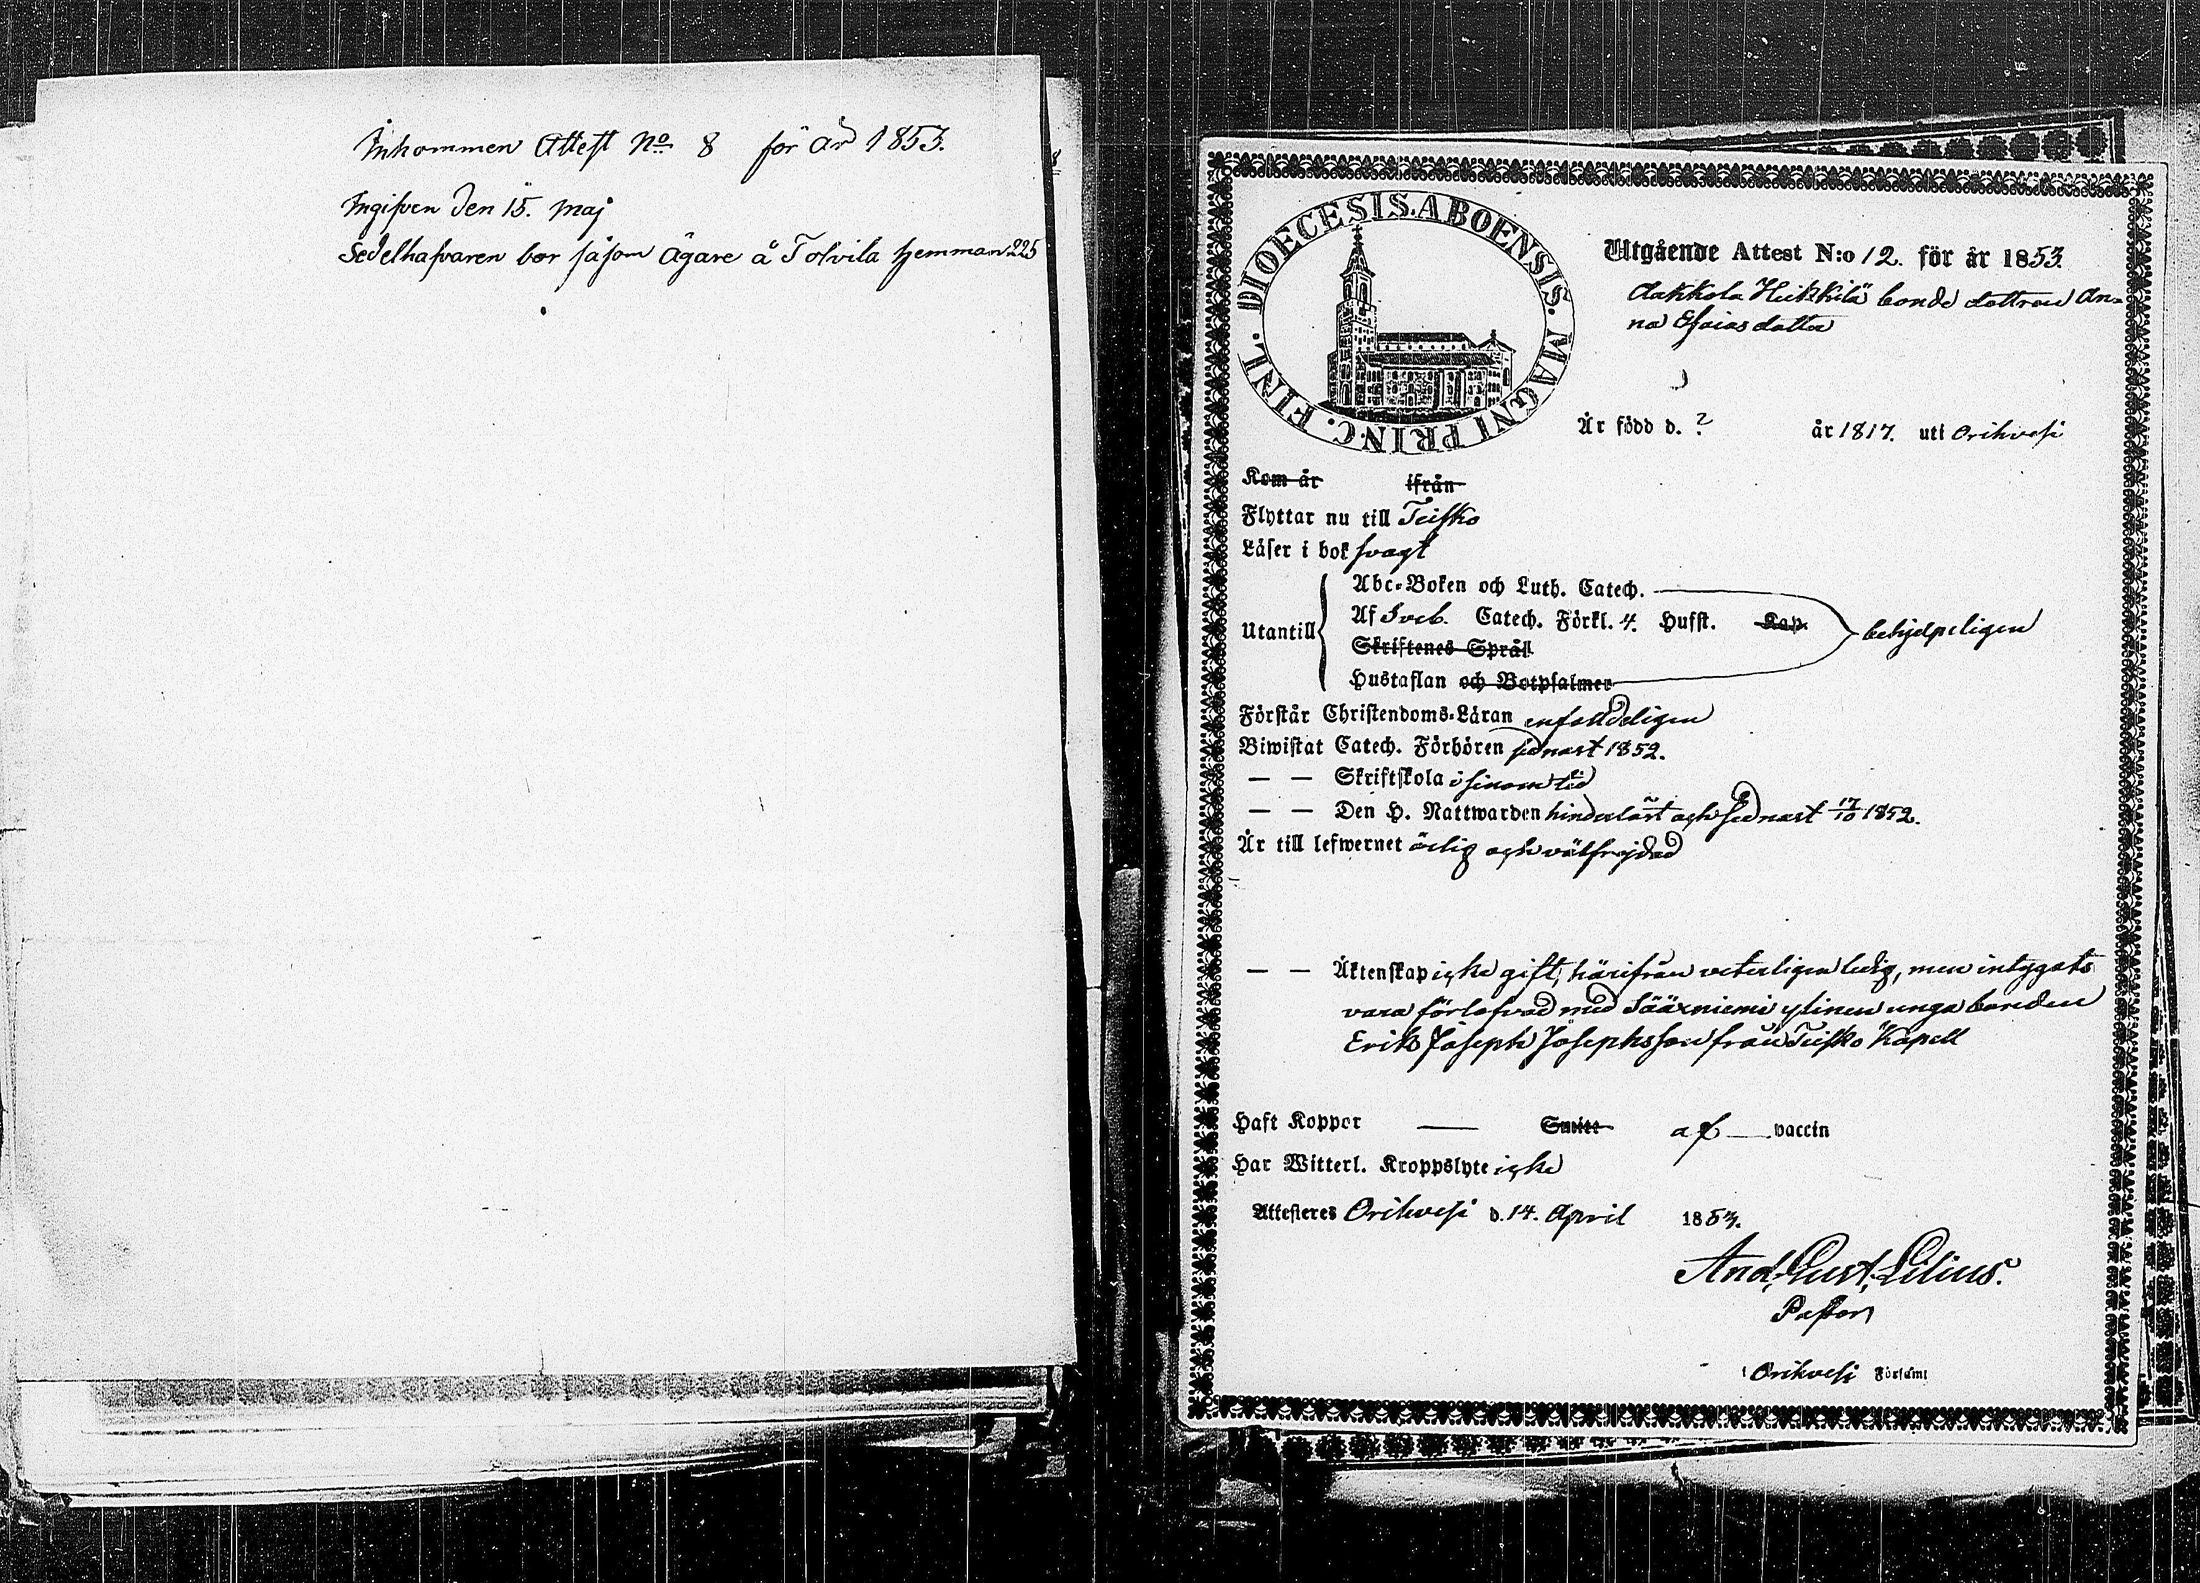 Inkommen Attest No 8 för år 1853.
Ingifven den 15. Maj
Sedelhafvaren bor såsom Ägare å Tolvila hemman 225
DIOECESIS. ABOENSIS. MAGNI PRINC. FINL.
Utgående Attest N:o 12. för år 1853.
Aakkola Heikkilä bonde dottren An=
na Esaias dotter
Är född d. ? år 1817. uti Orihvesi
Kom år ifrån
Flyttar nu till Teisko
Läser i bok svagt
Utantill
Abc-Boken och Luth. Catech.
Af Sveb. Catech. Förkl. 4. Hufst. Kap.
Skriftenes Språk
Hustaflan och Botpsalmer
behjelpeligen
Förstår Christendoms-Läran enfalldeligen
Biwistat Catech. Förhören sednast 1852.
— — Skriftskola i sinom tid
— — Den H. Nattwarden hinderlöst och sednast 17/10 1852.
Är till lefwernet ärlig och välfrejdad
— — Äktenskap icke gift, härifrån veterligen ledig, men intygats
vara förlofvad med Sääxniemi ylinen unga bonden
Erik Joseph Josephsson från Teisko Kapell
Haft Koppor — Smitt af — vaccin
Har Witterl. Kroppslyte icke
Attesteres Orihvesi d. 14. April 1853.
And. Gust. Lilius.
Pastor
i Orihvesi Församl